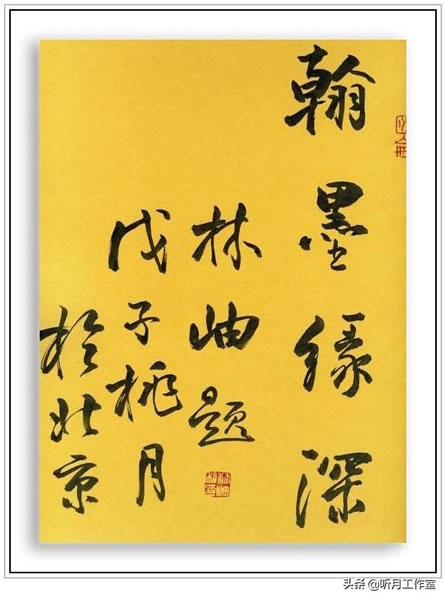 翰墨缘深
林岫题
戊子桃月
於北京
头条@听月工作室